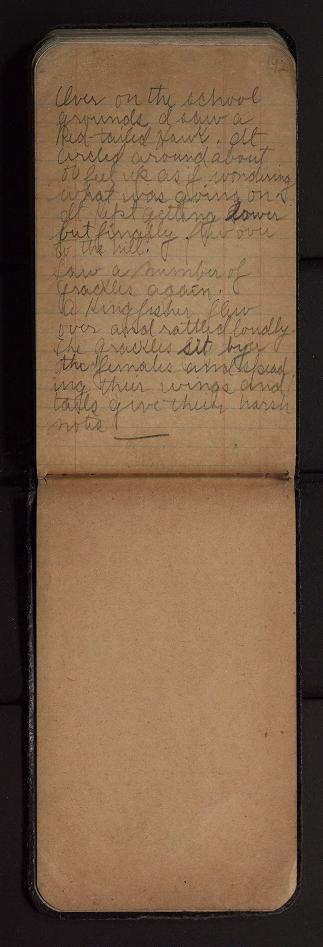 Over on the school
grounds I saw a
Red-tailed Hawk. It
circled around about
60 feet up as if wondering
what was going on &
It kept getting lower
but finally flew over
to the hill.
Saw a number of
Grackles again.
A Kingfisher flew
over and rattled loudly.
The Grackles sit by
the females and spread
ing their wings and
tails give their harsh
note.